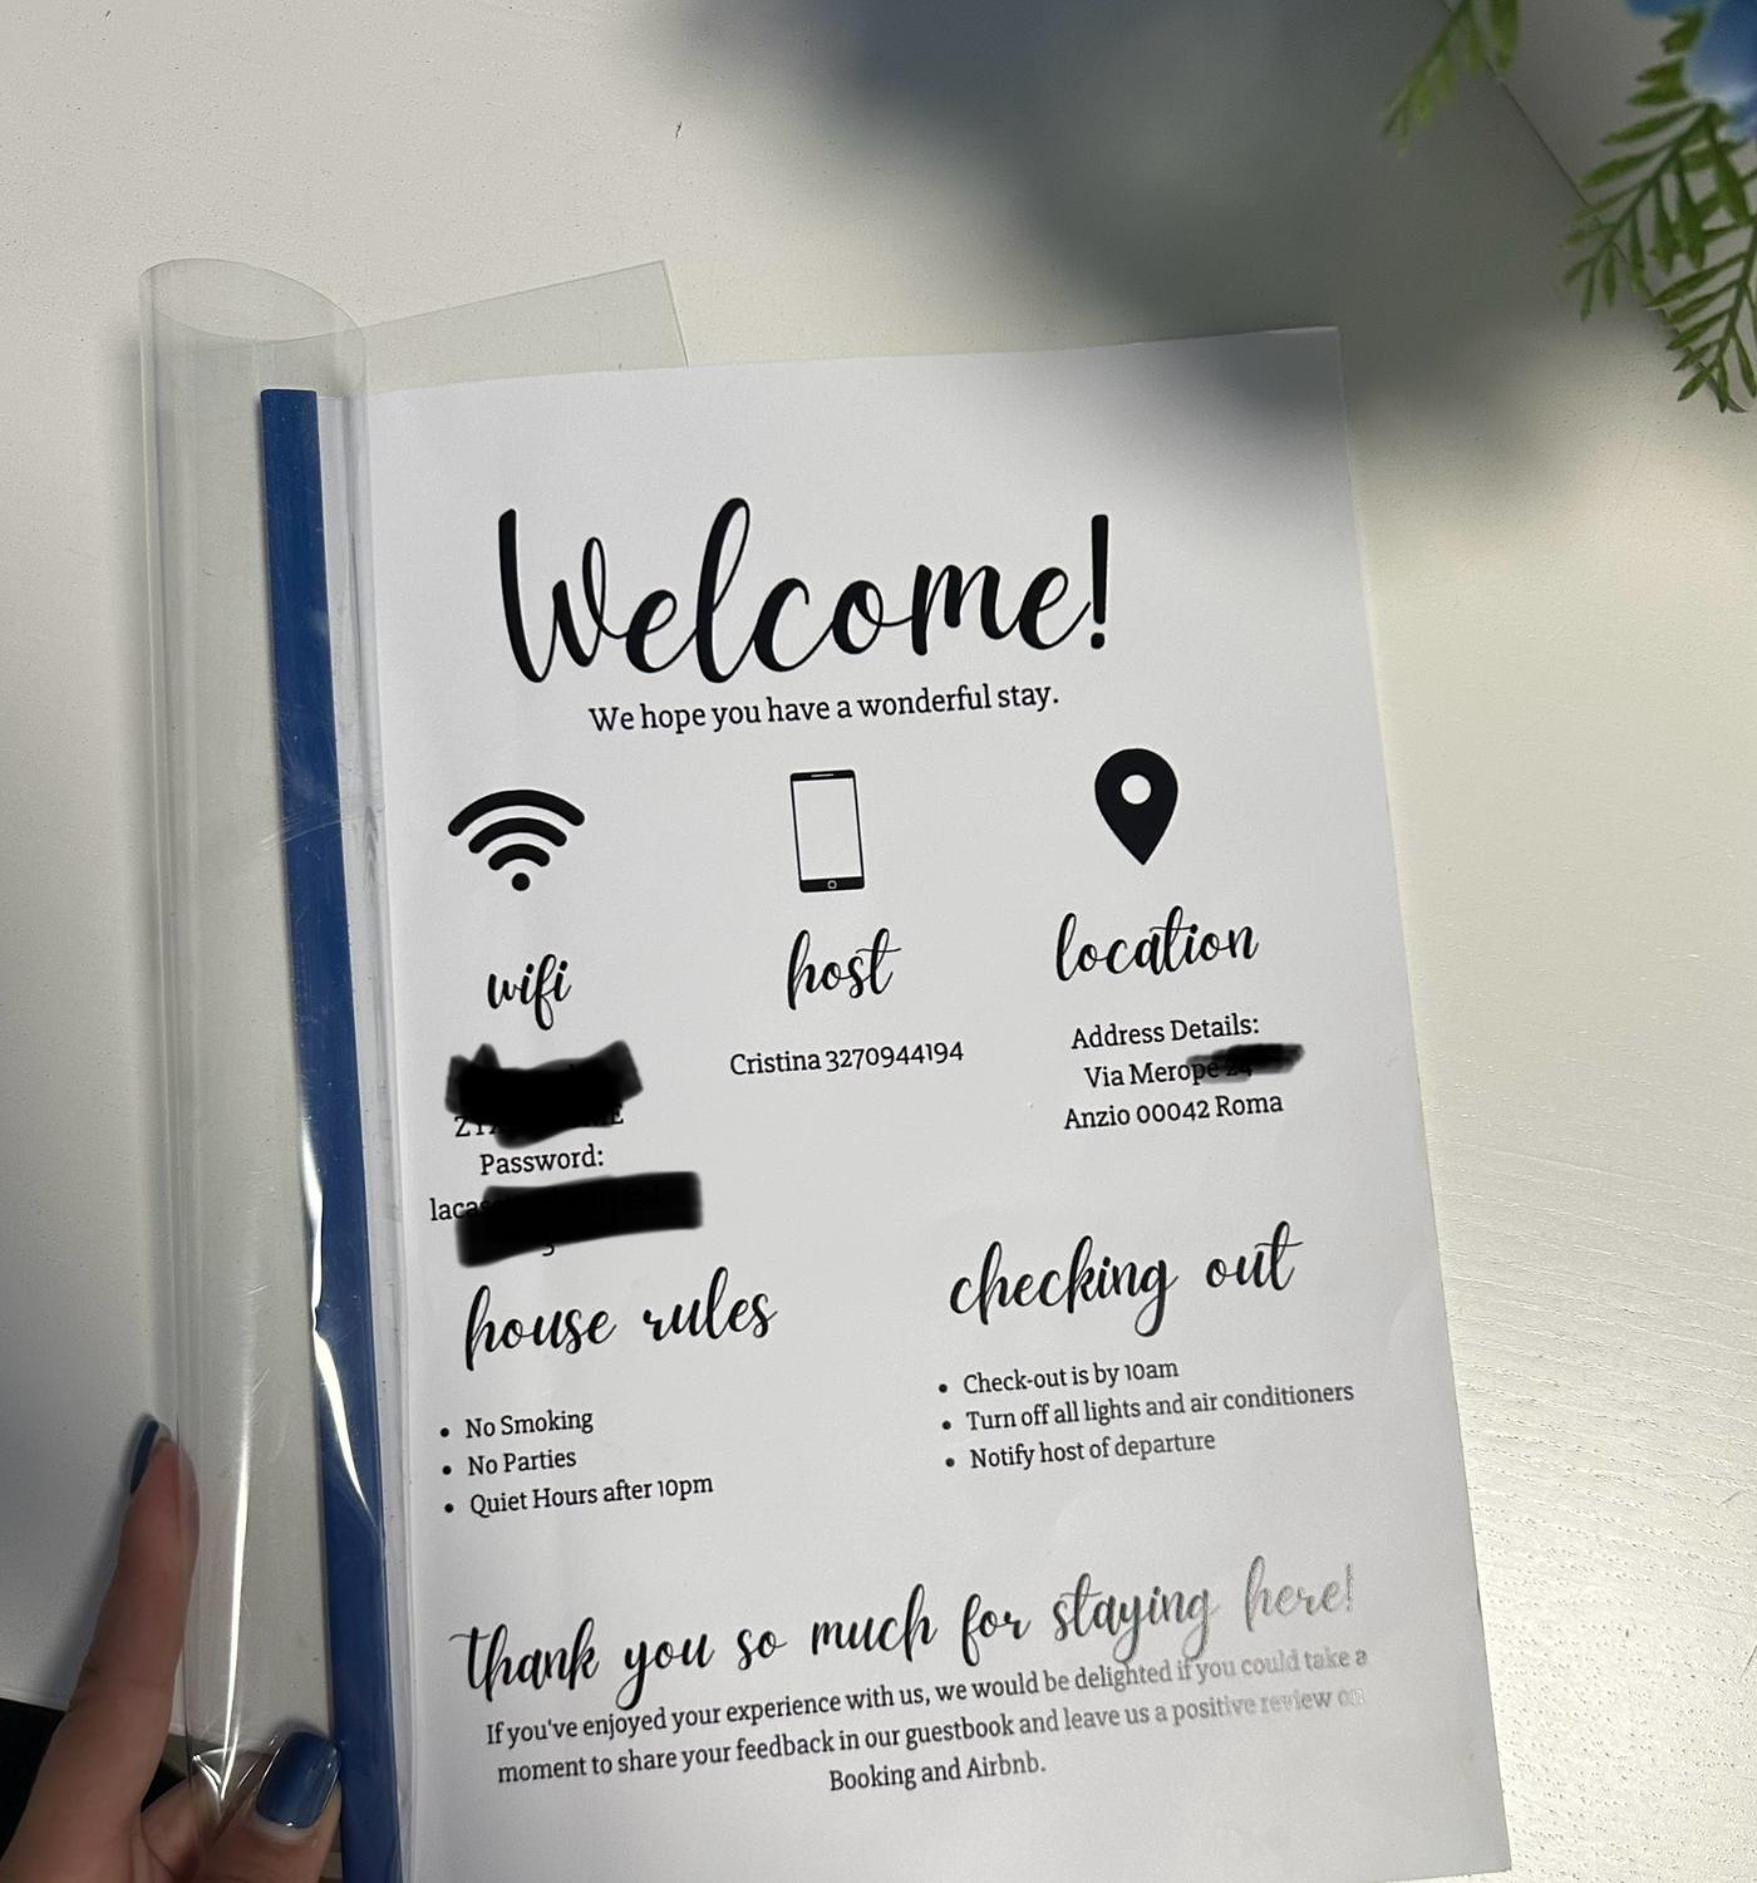 Welcome!
We hope you have a wonderful stay.
wifi
Password:
host
Cristina 3270944194
location
Address Details:
Via Merope
Anzio 00042 Roma
house rules
• No Smoking
• No Parties
• Quiet Hours after 10pm
checking out
• Check-out is by 10am
• Turn off all lights and air conditioners
• Notify host of departure
thank you so much for staying here!
If you've enjoyed your experience with us, we would be delighted if you could take a
moment to share your feedback in our guestbook and leave us a positive review on
Booking and Airbnb.